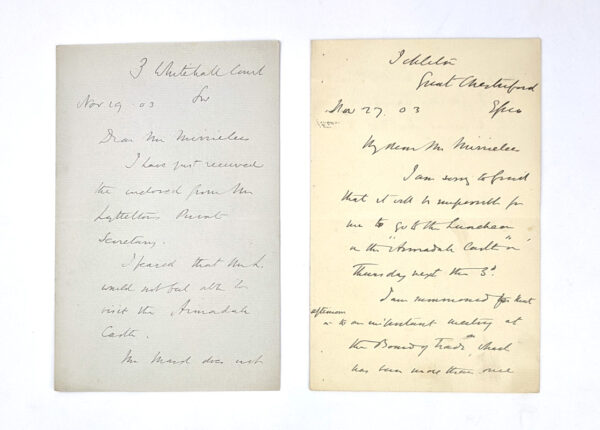 3 Whitehall Court
Nov 19 . 03 SW
Dear Mr Mirrielees
I have just received
the enclosed from Mr
Lyttelton's Private
Secretary.
I feared that Mr L.
would not be able to
visit the Armadale
Castle.
Mr Ward does not
Ickleton
Great Chesterford
Nov 27 . 03 Essex
My dear Mr Mirrielees
I am sorry to find
that it will be impossible for
me to go to the Luncheon
in the "Armadale Castle" on
Thursday next the 3d.
I am summoned for that
afternoon
to an important meeting at
the Board of Trade, which
has been more than once